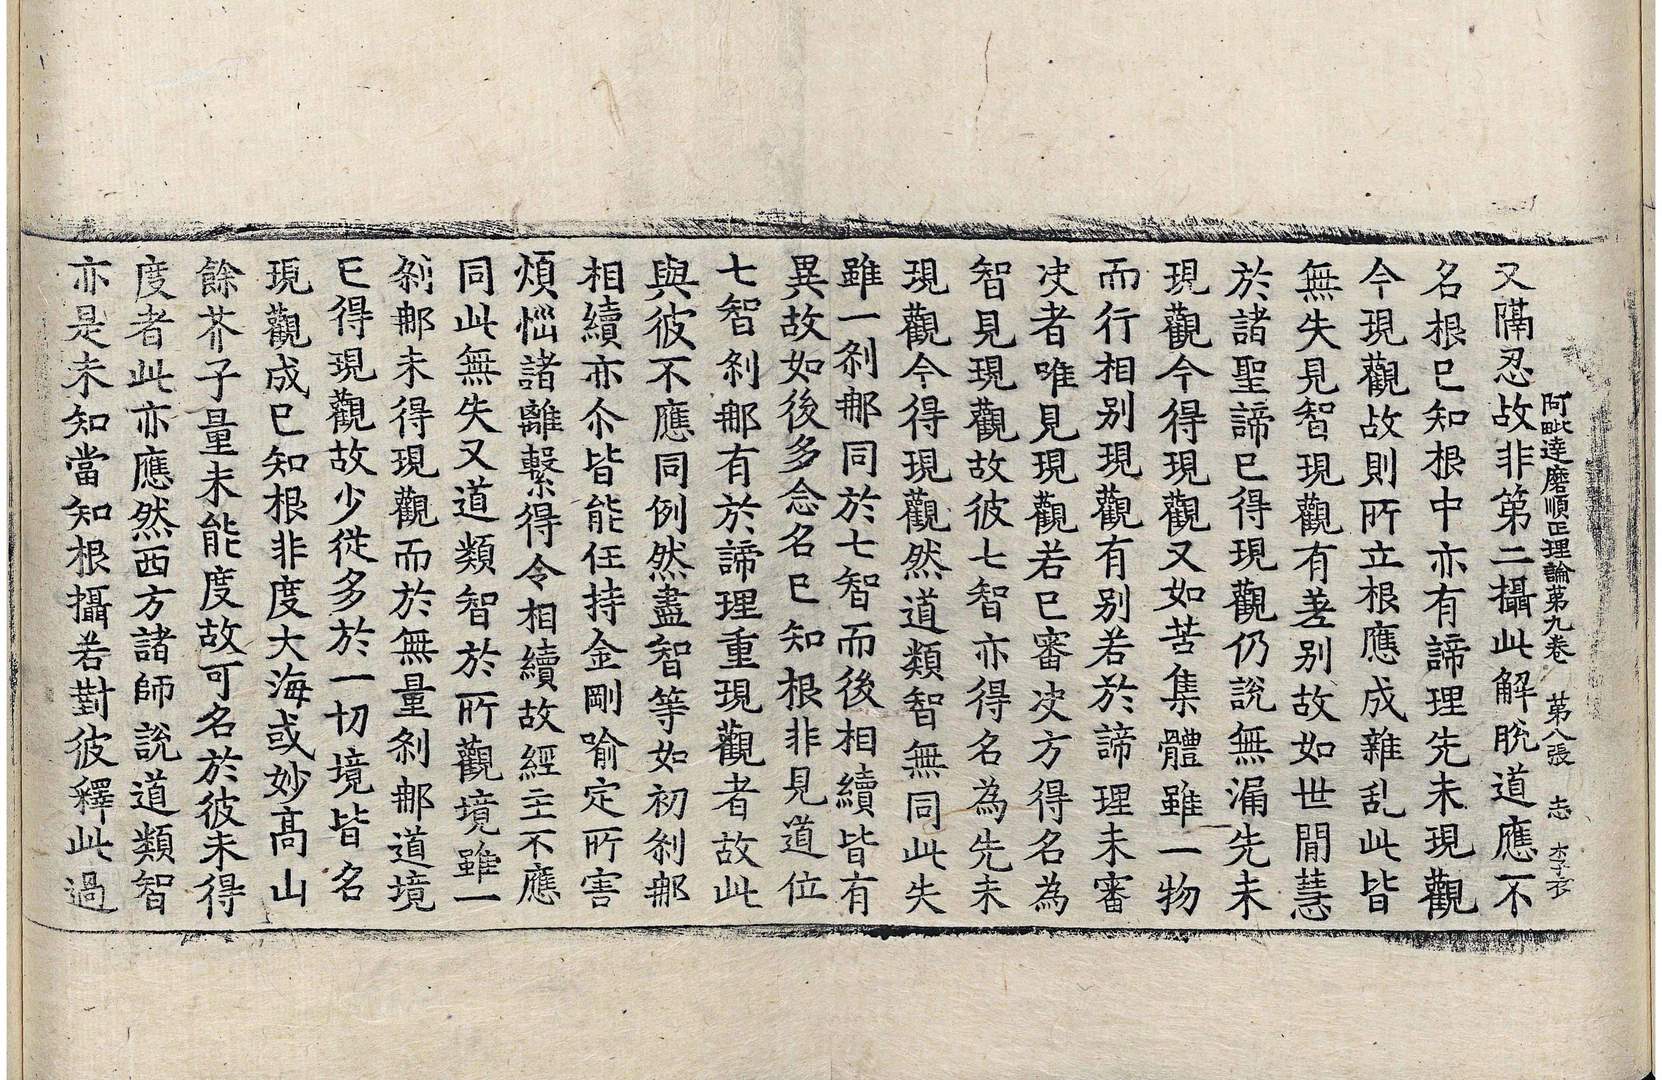 阿毗達磨順正理論第九卷 第八張 志
又隔忍故非第二攝此解脫道應不
名根已知根中亦有諦理先未現觀
今現觀故則所立根應成雜乱此皆
無失見智現觀有差別故如世間慧
於諸聖諦已得現觀仍說無漏先未
現觀今得現觀又如苦集體雖一物
而行相別現觀有別若於諦理未審
决者唯見現觀若已審决方得名為
智見現觀故彼七智亦得名為先未
現觀今得現觀然道類智無同此失
雖一剎那同於七智而後相續皆有
異故如後多念名已知根非見道位
七智剎那有於諦理重現觀者故此
與彼不應同例然盡智等如初剎那
相續亦尒皆能任持金剛喻定所害
煩惱諸離繫得令相續故經主不應
同此無失又道類智於所觀境雖一
剎那未得現觀而於無量剎那道境
已得現觀故少從多於一切境皆名
現觀成已知根非度大海或妙高山
餘芥子量未能度故可名於彼未得
度者此亦應然西方諸師說道類智
亦是未知當知根攝若對彼釋此過